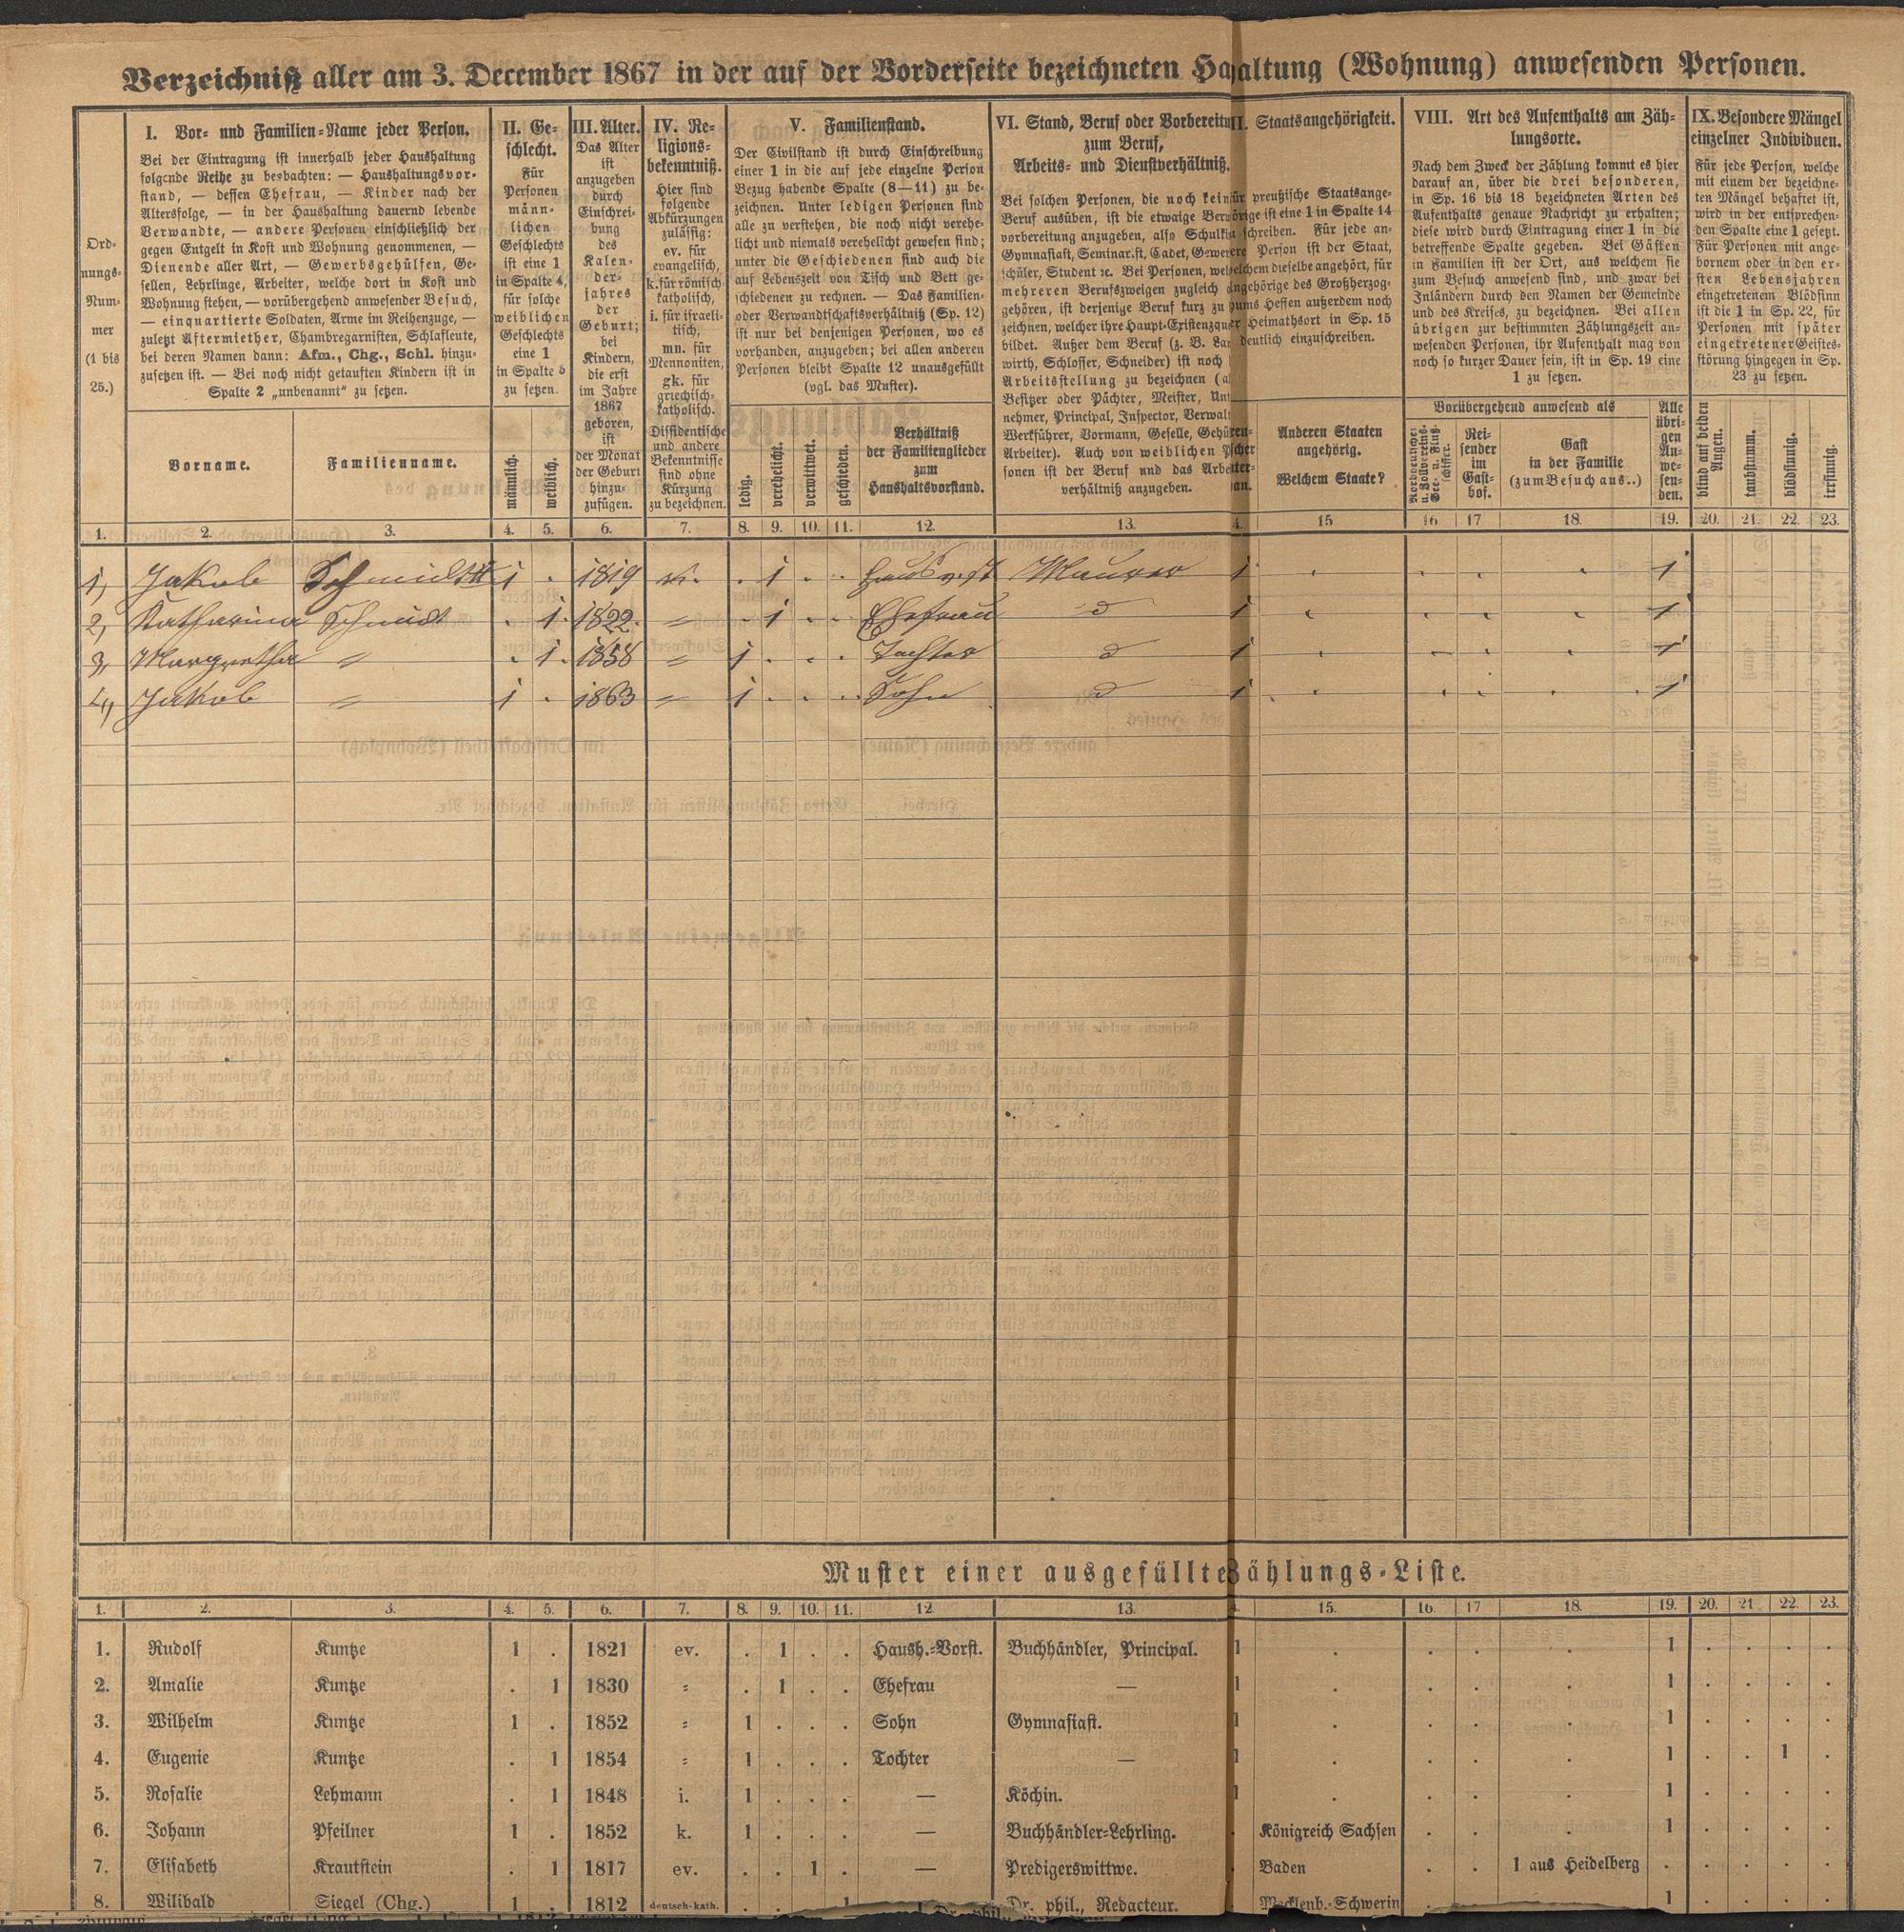 Verzeichniß aller am 3. December 1867 in der auf der Vorderseite bezeichneten Ha altung (Wohnung) anwesenden Personen.
Ord-
nungs-
Num-
mer
(1 bis
25.)
I. Vor- und Familien-Name jeder Person.
Bei der Eintragung ist innerhalb jeder Haushaltung
folgende Reihe zu beobachten: — Haushaltungsvor-
stand, — dessen Ehefrau, — Kinder nach der
Altersfolge, — in der Haushaltung dauernd lebende
Verwandte, — andere Personen einschließlich der
gegen Entgelt in Kost und Wohnung genommenen, —
Dienende aller Art, — Gewerbsgehülfen, Ge-
sellen, Lehrlinge, Arbeiter, welche dort in Kost und
Wohnung stehen, — vorübergehend anwesender Besuch,
— einquartierte Soldaten, Arme im Reihenzuge, —
zuletzt Aftermiether, Chambregarnisten, Schlafleute,
bei deren Namen dann: Afm., Chg., Schl. hinzu-
zusetzen ist. — Bei noch nicht getauften Kindern ist in
Spalte 2 „unbenannt“ zu setzen.
Vorname.
Familienname.
II. Ge-
schlecht.
Für
Personen
männ-
lichen
Geschlechts
ist eine 1
in Spalte 4,
für solche
weiblichen
Geschlechts
eine 1
in Spalte 5
zu setzen.
männlich.
weiblich.
III. Alter.
Das Alter
ist
anzugeben
durch
Einschrei-
bung
des
Kalen-
der-
jahres
der
Geburt;
bei
Kindern,
die erst
im Jahre
1867
geboren,
ist
der Monat
der Geburt
hinzu-
zufügen.
IV. Re-
ligions-
bekenntniß.
Hier sind
folgende
Abkürzungen
zulässig:
ev. für
evangelisch,
k. für römisch-
katholisch,
i. für israeli-
tisch,
mn. für
Mennoniten,
gk. für
griechisch-
katholisch.
Dissidentische
und andere
Bekenntnisse
sind ohne
Kürzung
zu bezeichnen.
V. Familienstand.
Der Civilstand ist durch Einschreibung
einer 1 in die auf jede einzelne Person
Bezug habende Spalte (8—11) zu be-
zeichnen. Unter ledigen Personen sind
alle zu verstehen, die noch nicht verehe-
licht und niemals verehelicht gewesen sind;
unter die Geschiedenen sind auch die
auf Lebenszeit von Tisch und Bett ge-
schiedenen zu rechnen. — Das Familien-
oder Verwandtschaftsverhältniß (Sp. 12)
ist nur bei denjenigen Personen, wo es
vorhanden, anzugeben; bei allen anderen
Personen bleibt Spalte 12 unausgefüllt
(vgl. das Muster).
ledig.
verehelicht.
verwittwet.
geschieden.
Verhältniß
der Familienglieder
zum
Haushaltsvorstand.
VI. Stand, Beruf oder Vorbereitun
zum Beruf,
Arbeits- und Dienstverhältniß.
Bei solchen Personen, die noch kein
Beruf ausüben, ist die etwaige Beru
vorbereitung anzugeben, also Schulki
Gymnasiast, Seminarist, Cadet, Gewer
schüler, Student ꝛc. Bei Personen, wel
mehreren Berufszweigen zugleich a
gehören, ist derjenige Beruf kurz zu
zeichnen, welcher ihre Haupt-Existenzqu
bildet. Außer dem Beruf (z. B. La
wirth, Schlosser, Schneider) ist noch
Arbeitsstellung zu bezeichnen (a
Besitzer oder Pächter, Meister, Un
nehmer, Principal, Inspector, Verwal
Werkführer, Vormann, Geselle, Gehü
Arbeiter). Auch von weiblichen P
sonen ist der Beruf und das Arbe
verhältniß anzugeben.
II. Staatsangehörigkeit.
ür preußische Staatsange-
örige ist eine 1 in Spalte 14
schreiben. Für jede an-
ere Person ist der Staat,
elchem dieselbe angehört, für
ngehörige des Großherzog-
ums Hessen außerdem noch
er Heimathsort in Sp. 15
deutlich einzuschreiben.
Anderen Staaten
angehörig.
Welchem Staate?
VIII. Art des Aufenthalts am Zäh-
lungsorte.
Nach dem Zweck der Zählung kommt es hier
darauf an, über die drei besonderen,
in Sp. 16 bis 18 bezeichneten Arten des
Aufenthalts genaue Nachricht zu erhalten;
diese wird durch Eintragung einer 1 in die
betreffende Spalte gegeben. Bei Gästen
in Familien ist der Ort, aus welchem sie
zum Besuch anwesend sind, und zwar bei
Inländern durch den Namen der Gemeinde
und des Kreises, zu bezeichnen. Bei allen
übrigen zur bestimmten Zählungszeit an-
wesenden Personen, ihr Aufenthalt mag von
noch so kurzer Dauer sein, ist in Sp. 19 eine
1 zu setzen.
Vorübergehend anwesend als
Norddeutscher
u. Zollvereins-
See- u. Fluß-
schiffer.
Rei-
sender
im
Gast-
hof.
Gast
in der Familie
(zum Besuch aus..)
Alle
übri-
gen
An-
we-
sen-
den.
IX. Besondere Mängel
einzelner Individuen.
Für jede Person, welche
mit einem der bezeichne-
ten Mängel behaftet ist,
wird in der entsprechen-
den Spalte eine 1 gesetzt.
Für Personen mit ange-
bornem oder in den er-
sten Lebensjahren
eingetretenem Blödsinn
ist die 1 in Sp. 22, für
Personen mit später
eingetretener Geistes-
störung hingegen in Sp.
23 zu setzen.
blind auf beiden
Augen.
taubstumm.
blödsinnig.
irrsinnig.
1. 2. 3. 4. 5. 6. 7. 8. 9. 10. 11. 12. 13. 4. 15 16 17 18. 19. 20. 21. 22. 23.
1, Jakob Schmidt II 1 . 1819 . 1 . . Hausv.st Maurer 1 . . . . 1
2, Katharina Schmidt . 1. 1822. " . 1 . . Ehefrau d 1 . . . . 1
3, Margretha " . 1. 1858 " 1 . . . Tochter d 1 . . . . 1
4, Jakob " 1 . 1863 " 1 . . . Sohn d 1 . . . . 1
Muster einer ausgefüllte Zählungs-Liste.
1. 2. 3. 4. 5. 6. 7. 8. 9. 10. 11. 12 13. 4. 15. 16. 17 18. 19. 20. 21 22. 23.
1. Rudolf Kuntze 1 . 1821 ev. . 1 . . Haush.-Vorst. Buchhändler, Principal. 1 . . . . 1 . . . .
2. Amalie Kuntze . 1 1830 " . 1 . . Ehefrau — 1 . . . . 1 . . . .
3. Wilhelm Kuntze 1 . 1852 " 1 . . . Sohn Gymnasiast. 1 . . . . 1 . . . .
4. Eugenie Kuntze . 1 1854 " 1 . . . Tochter — 1 . . . . 1 . . 1 .
5. Rosalie Lehmann . 1 1848 i. 1 . . . — Köchin. 1 . . . . 1 . . . .
6. Johann Pfeilner 1 . 1852 k. 1 . . . — Buchhändler-Lehrling. . Königreich Sachsen . . . 1 . . . .
7. Elisabeth Krautstein . 1 1817 ev. . . 1 . — Predigerswittwe. . Baden . . 1 aus Heidelberg . . . . .
8. Wilibald Siegel (Chg.) 1 . 1812 deutsch-kath. . . . 1 Dr. phil., Redacteur. Mecklenb.-Schwerin 1 . . . .